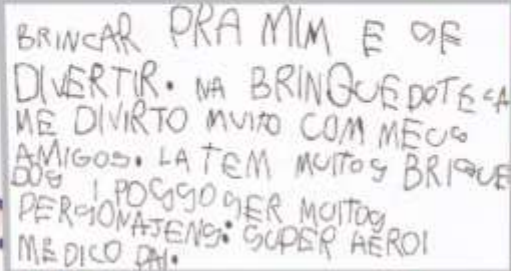 BRINCAR PRA MIM E SE
DIVERTIR. NA BRINQUEDOTECA
ME DIVIRTO MUITO COM MEUS
AMIGOS. LA TEM MUITOS BRIQUE
DOS I POSSO SER MUITOS
PERSONAJENS: SUPER HEROI
MEDICO PAI.